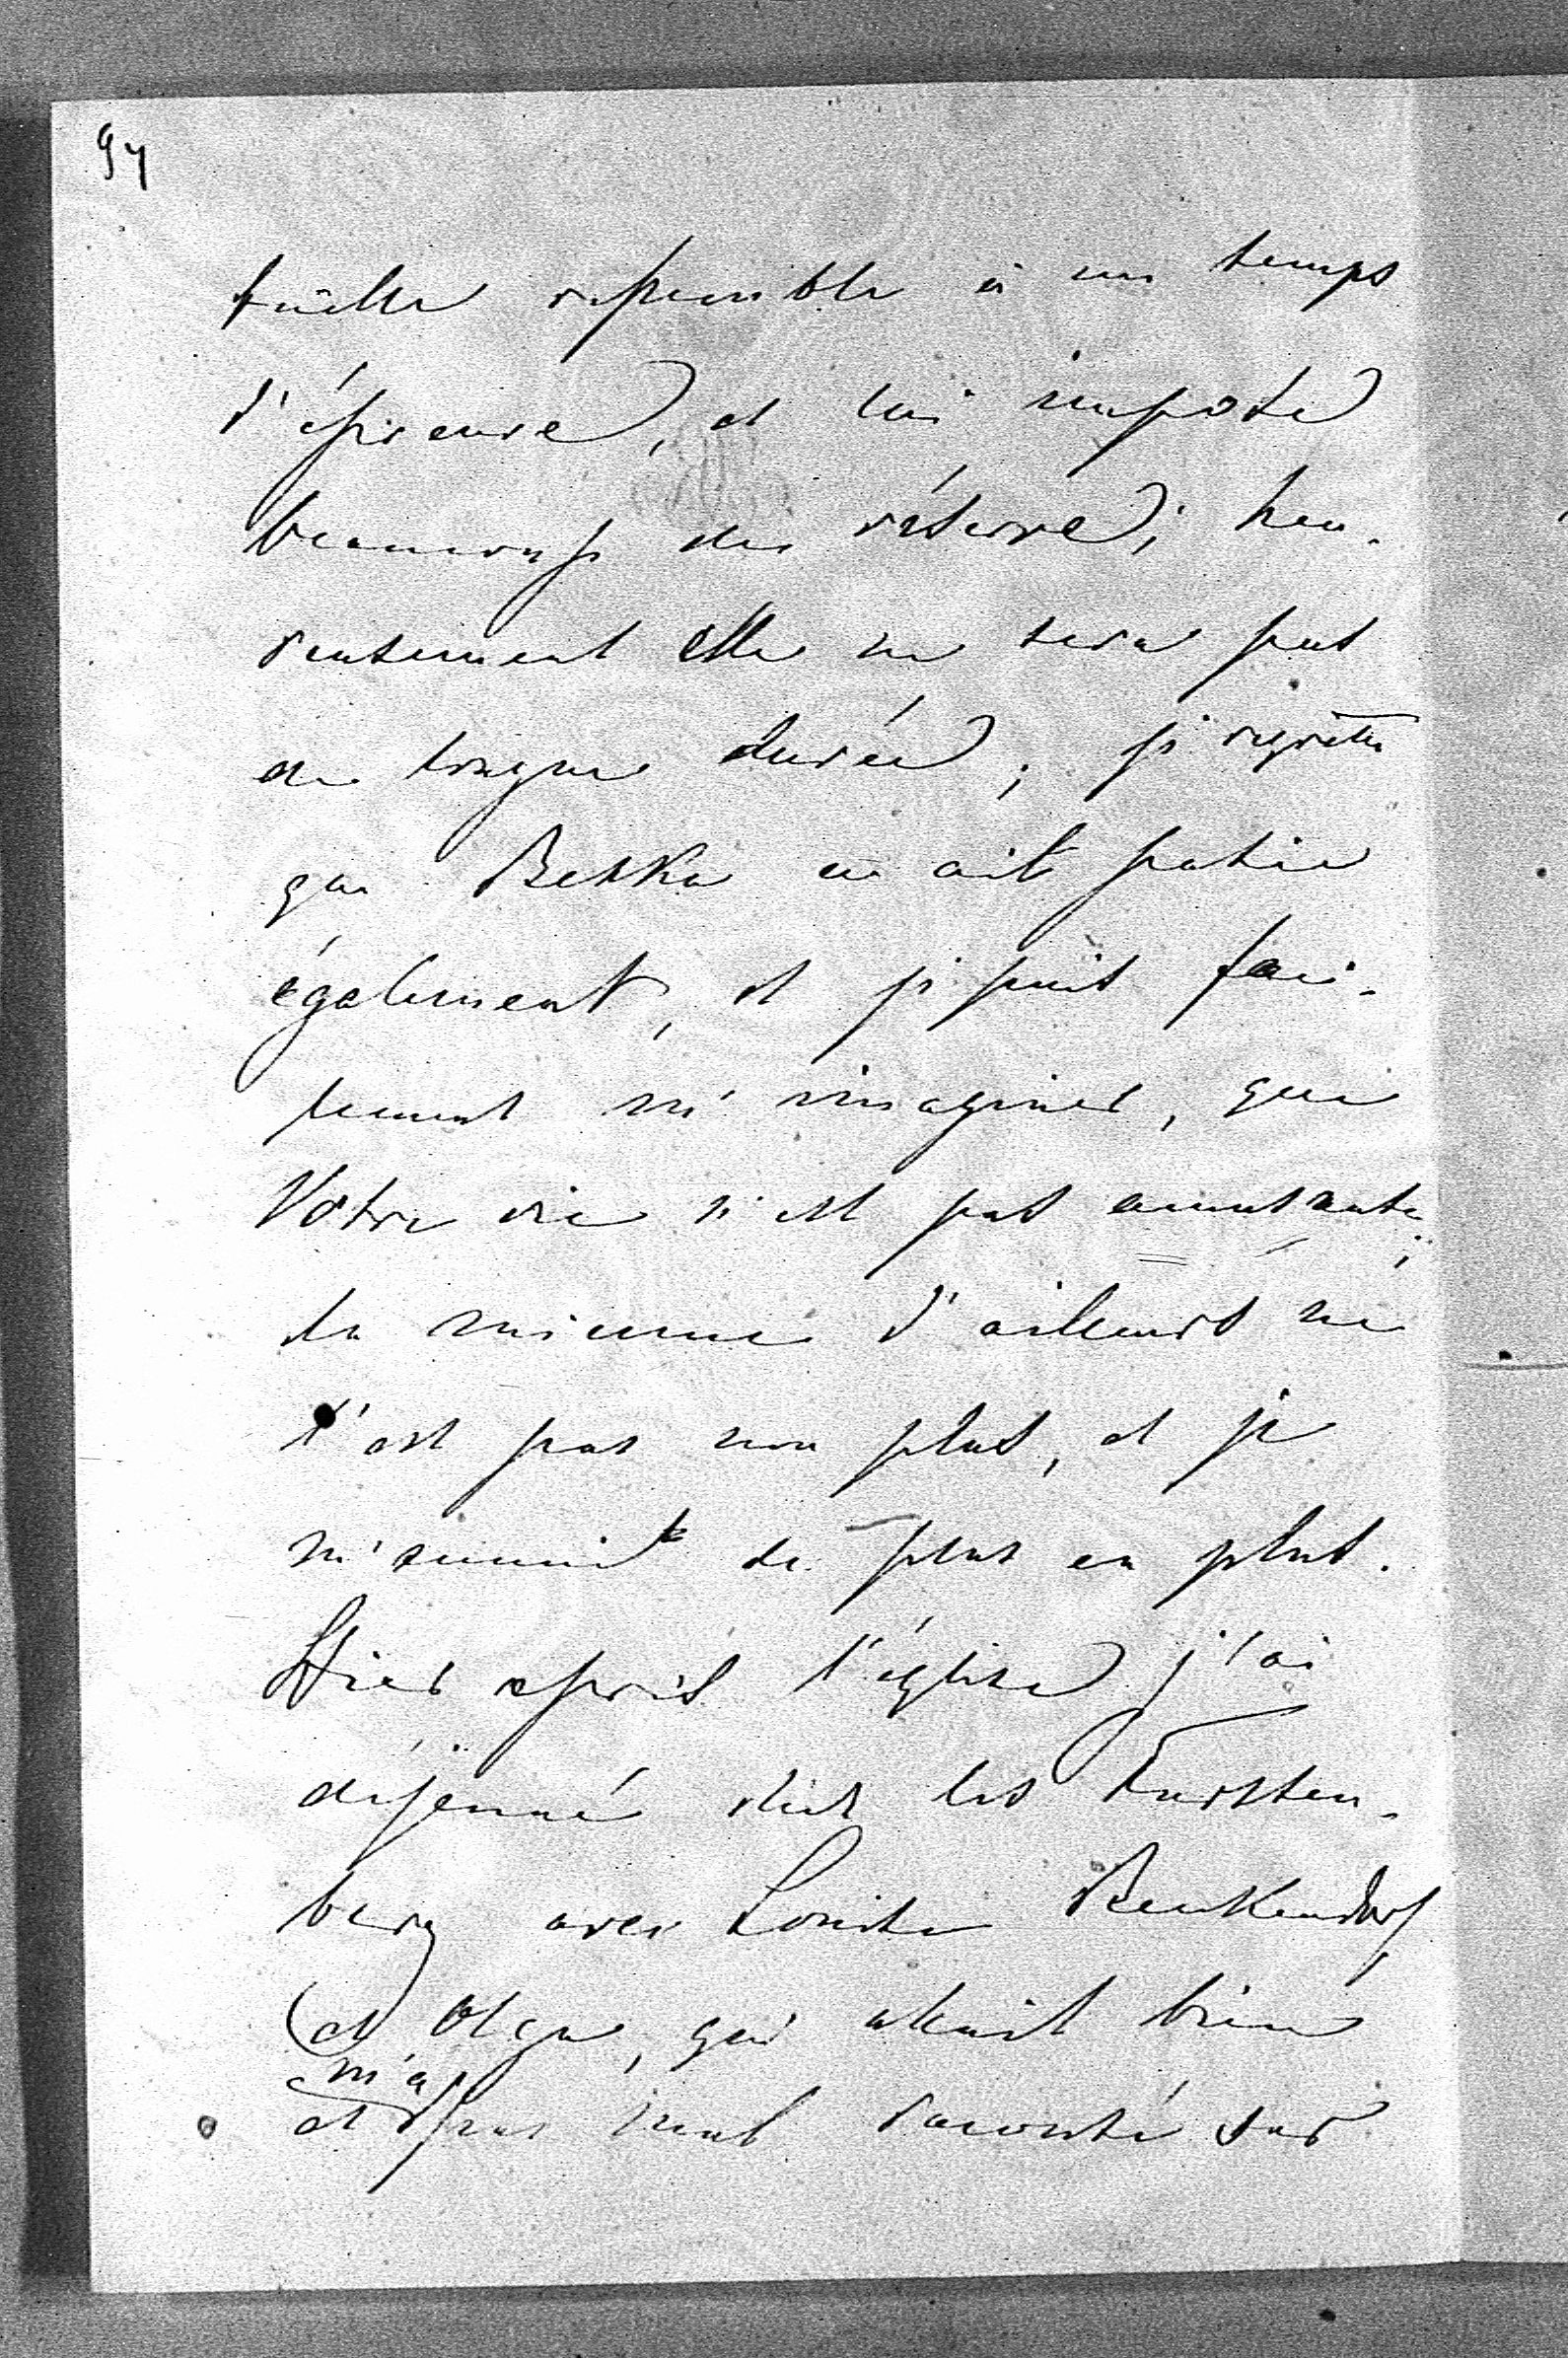 94
tuelle ressemble à un temps
d'épreuve, et lui impose
beaucoup de réserve; heu-
reusement elle ne sera pas
de longue durée; je regrette
que Bekka en ait patie
également, et je puis faci-
lement m'imaginer, que
Votre vie n'est pas amusante;
la mienne d'ailleurs ne
l'est pas non plus, et je
m'ennuie de plus en plus.
Hier après l'église j'ai
déjeuné chez les Fursten-
berg avec Louise Benkendorf
et Olga, qui allait bien
et m'a pas mal raconté sur